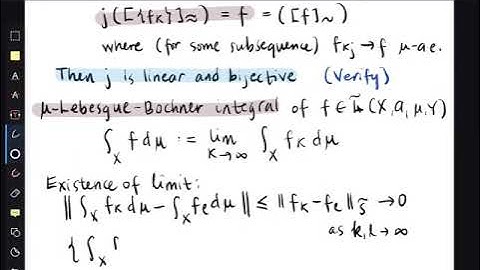 j([{fk}]≈) = f = ([f]~)
where (for some subsequence) fkj → f μ-ae.
Then j is linear and bijective (Verify)
μ-Lebesgue-Bochner integral of f ∈ L̃1(X,a,μ,Y)
∫X f dμ := lim k→∞ ∫X fk dμ
Existence of limit:
‖∫X fk dμ - ∫X fl dμ‖ ≤ ‖fk - fl‖ξ → 0
as k,l → ∞
{∫X f